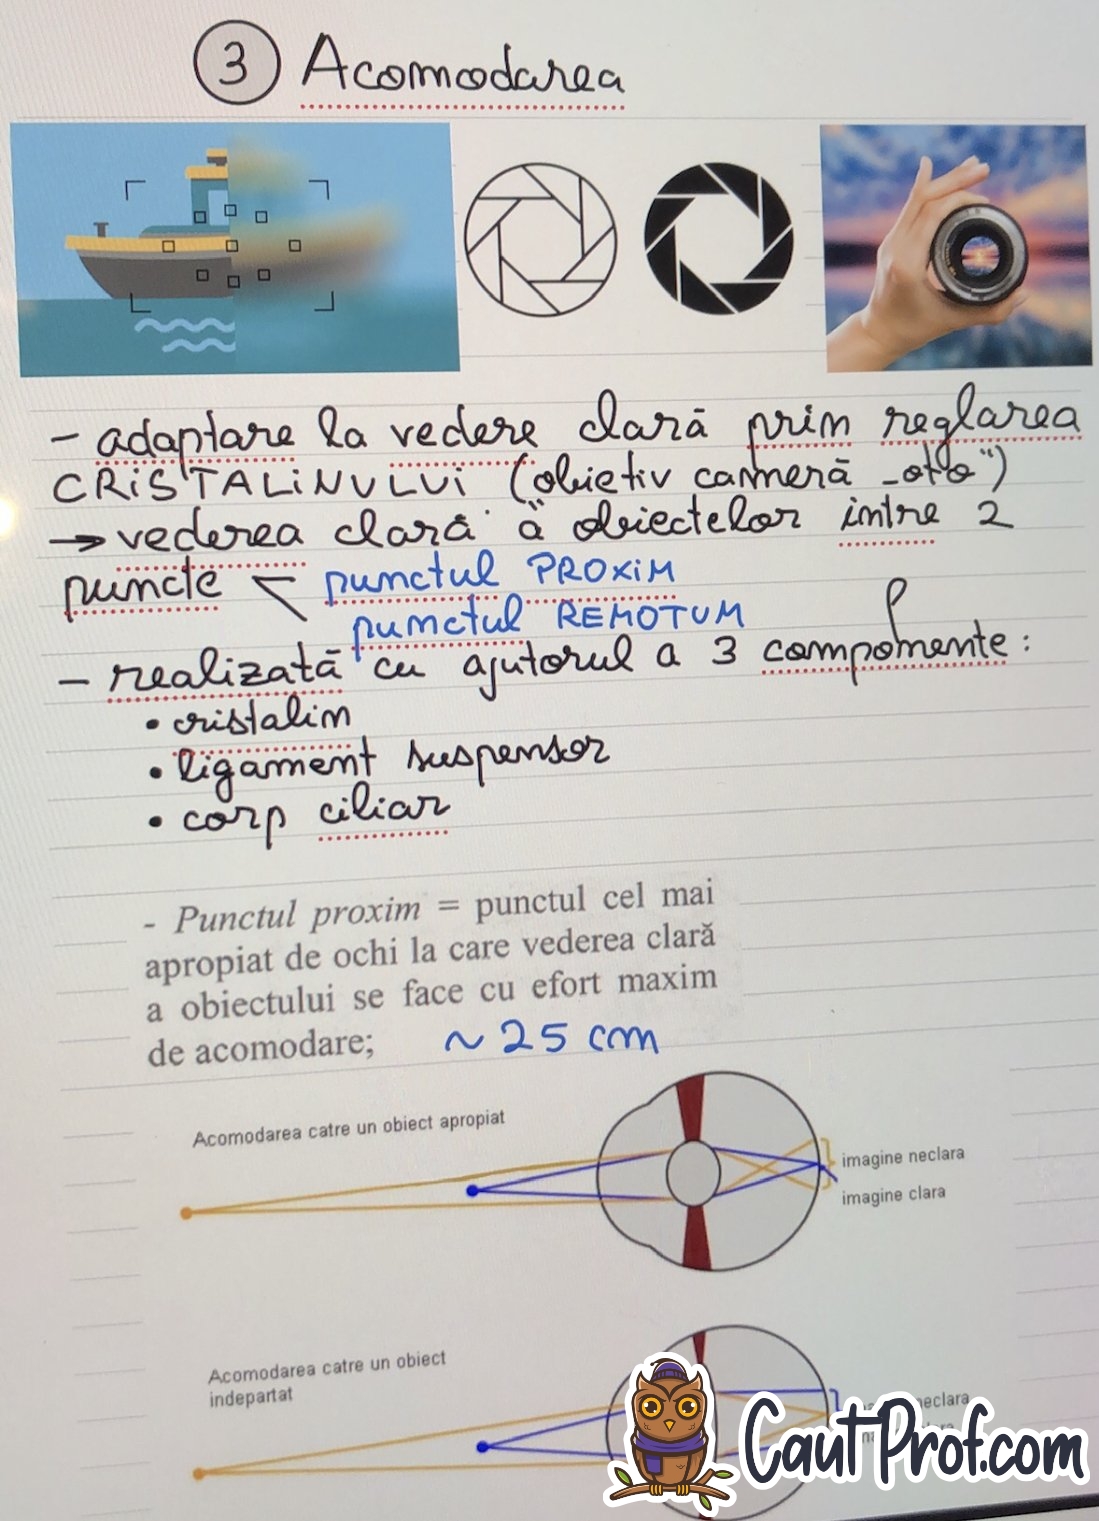 3 Acomodarea
- adaptare la vedere clară prim reglarea
CRISTALINULUI (obietiv cameră -oto")
→ vederea clară a obiectelor intre 2
puncte < punctul PROXIM
punctul REMOTUM
- realizată cu ajutorul a 3 componente:
• cristalin
• ligament suspensor
• corp ciliar
- Punctul proxim = punctul cel mai
apropiat de ochi la care vederea clară
a obiectului se face cu efort maxim
de acomodare; ~ 25 cm
Acomodarea catre un obiect apropiat
imagine neclara
imagine clara
Acomodarea catre un obiect
indepartat
neclara
CautProf.com